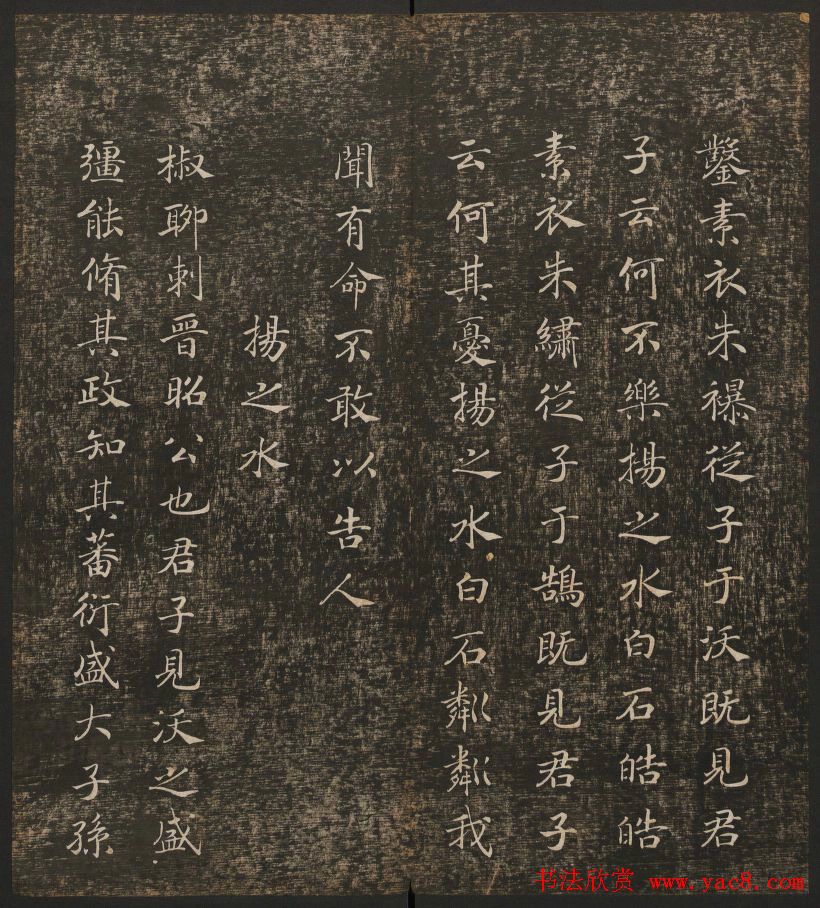 鑿素衣朱襮從子于沃既見君
子云何不樂揚之水白石皓皓
素衣朱繡從子于鵠既見君子
云何其憂揚之水白石粼粼我
聞有命不敢以告人
揚之水
椒聊刺晉昭公也君子見沃之盛
彊能脩其政知其蕃衍盛大子孫
书法欣赏 www.yac8.com